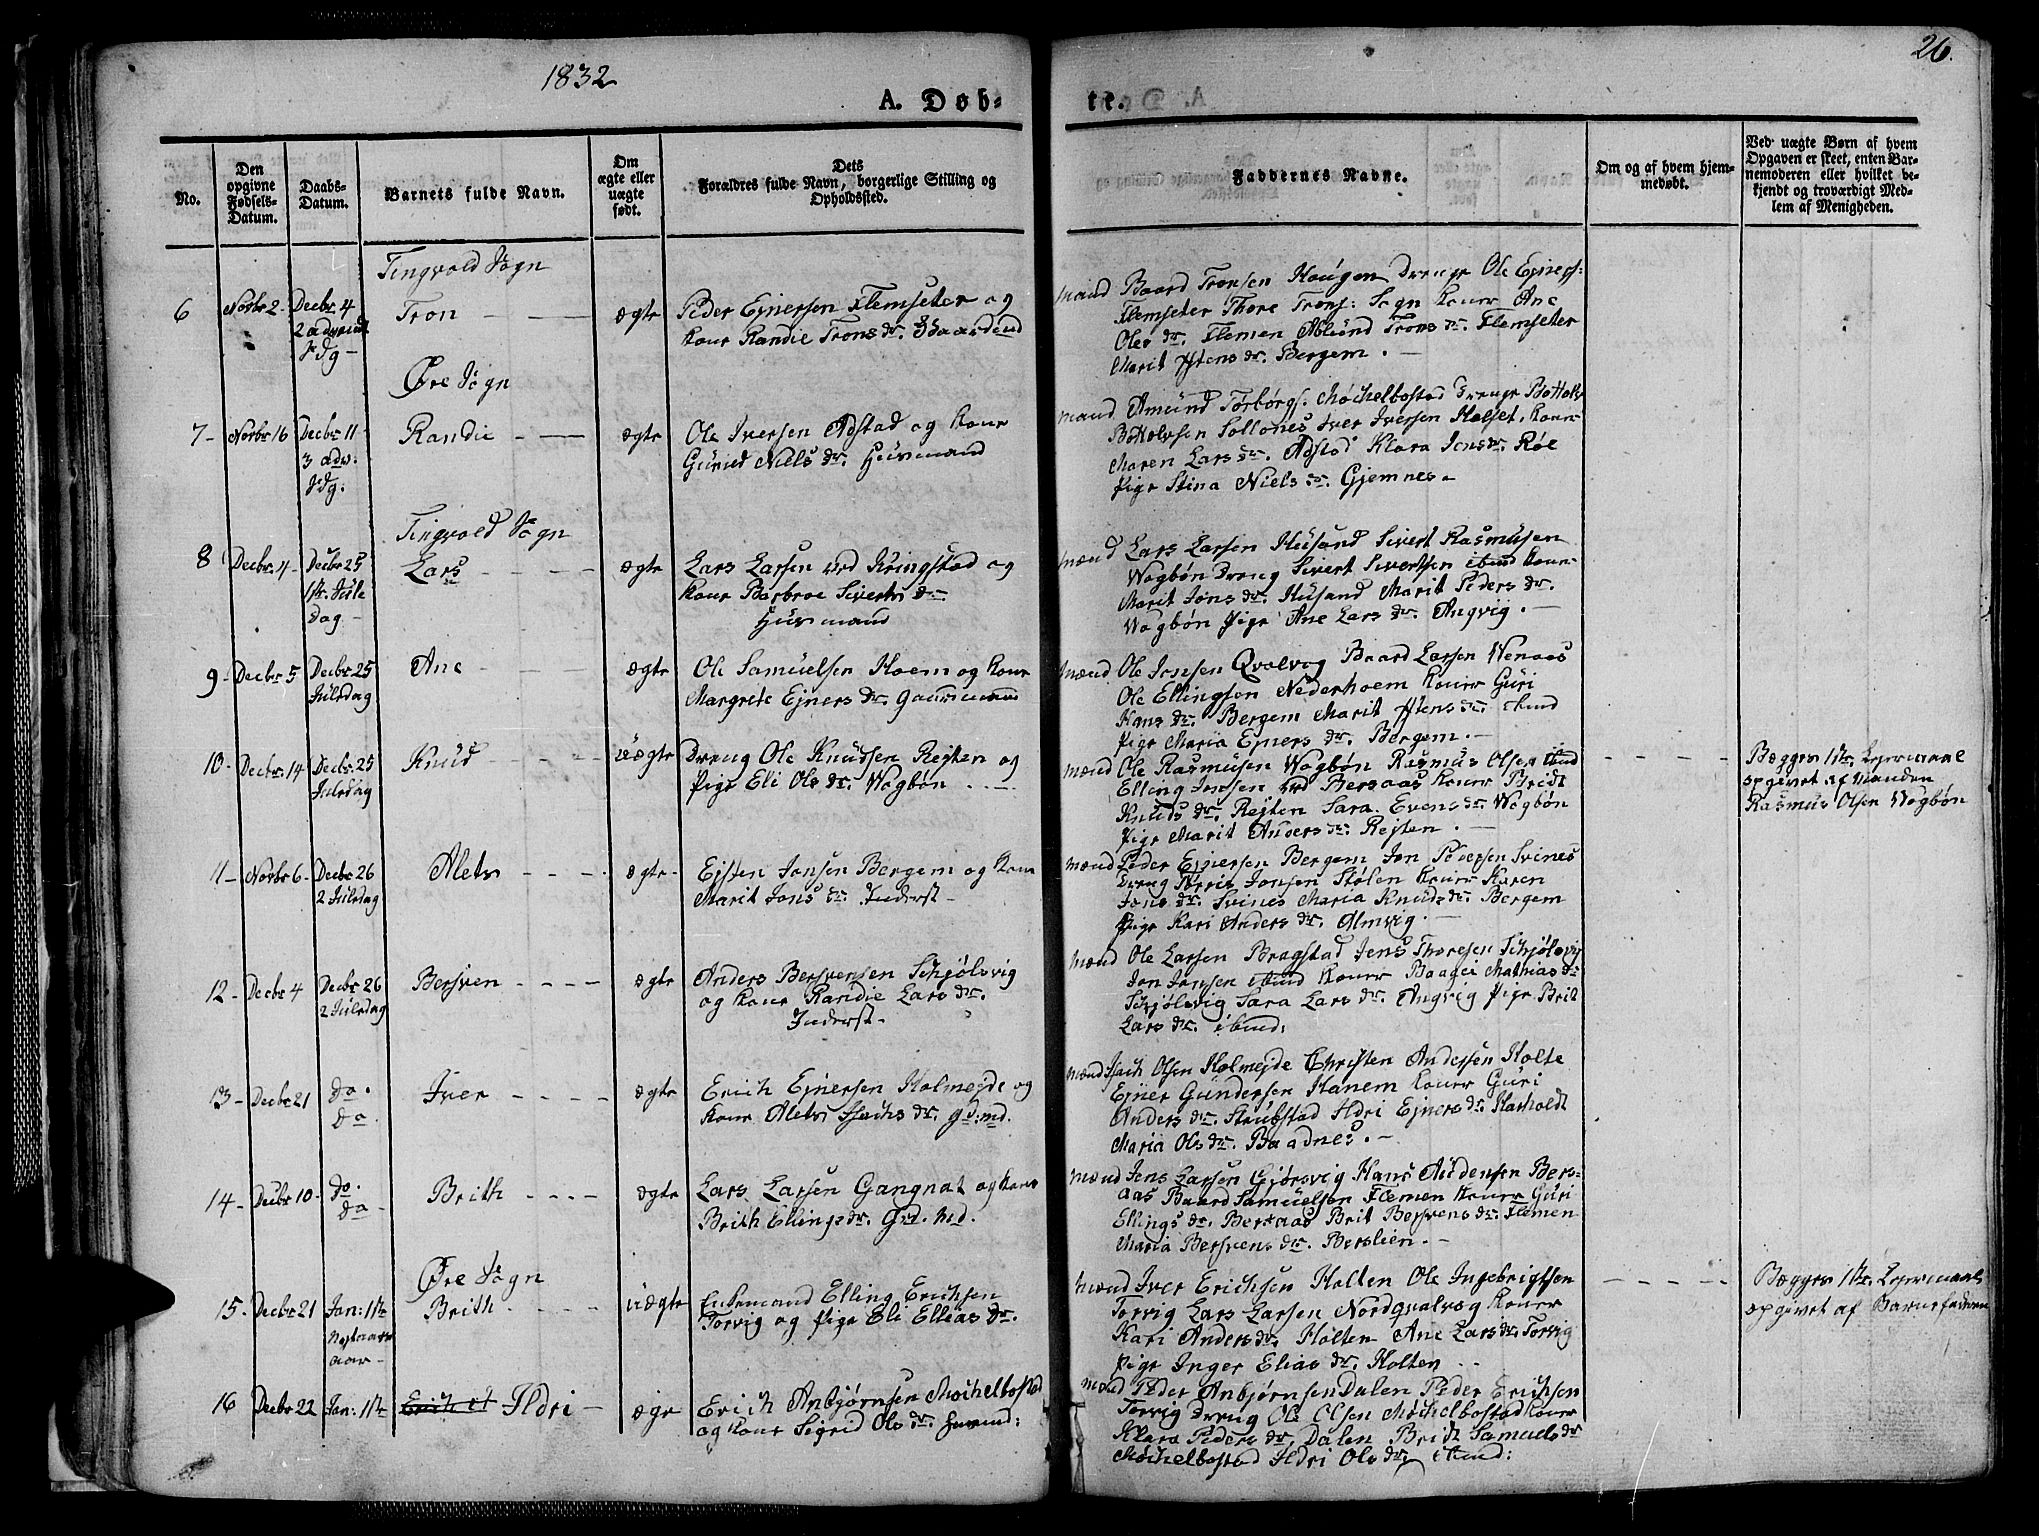 1832
26.
A. Døb-
te.
No.
Den opgivne Fødsels-Datum.
Daabs-Datum.
Barnets fulde Navn.
Om ægte eller uægte født.
Dets Forældres fulde Navn, borgerlige Stilling og Opholdssted.
Faddernes Navne.
Om og af hvem hjemmedøbt.
Ved uægte Børn af hvem Opgaven er skeet, enten Barnemoderen eller hvilket bekjendt og troværdigt Medlem af Menigheden.
Tingvold Sogn
6
Novbr 2-
Decbr 4
2 advent
Sdg-
Tron
ægte
Peder Ejnersen Flemseter og
kone Randie Trons dr.
mænd Baard Tronsen Haugen Drenge Ole Ejners:
Flemseter Thore Trons: Sogn koner Ane
Ols dr. Flemen Ablund Trons dr. Flemseter
Marit Ystens dr. Bergem.
Øre Sogn
7-
Novbr 16
Decbr 11
3 adv.
Sdg.
Randie
ægte
Ole Iversen Adstad og kone
Gurud Niels dr. Huusmand
mænd Amund Torborgs: Møchelbostad Drenge Bottolv
Bottolvsen Sollones Iver Iversen Holset, kone-
Maren Lars dr. Adstad Klara Jons dr. Røe
Pige Stina Niels dr. Gjemnes-
Tingvold Sogn
8
Decbr. 4-
Decbr 25
1ste Jule
dag-
Lars
ægte
Lars Larsen ved Kringstad og
kone Barbroe Siverts dr
Huusmand
mænd Lars Larsen Husand Sivert Rasmusen
Wogbøn Dreng Sivert Sivertsen ibmd kone-
Marit Jons dr. Husand Marit Peders dr.
Wogbøn Pige Ane Lars dr. Angvig.
9-
Decbr 5
Decbr 25
Juledag
Ane
ægte
Ole Samuelsen Hoem og kone
Margrete Ejners dr. Gaardmand
mænd Ole Jonsen Qvalvog Baard Larsen Wenaas
Ole Ellingsen Nederhoem koner Guri
Hans dr. Bergem Marit Ystens dr. ibmd
Pige Maria Ejners dr. Bergem.
10-
Decbr. 14
Decbr. 25
Juledag
Knud
uægte
Dreng Ole Knudsen Rejten og
Pige Eli Ols dr. Wogbøn
mænd Ole Rasmusen Wogbøn Rasmus Olsen ibmd
Elling Jonsen ved Bersaas koner Bridt
Knuds dr. Rejten Sara Evens dr. Wogbøn
Pige Marit Anders dr. Rejten.
Begges 1ste Lejermaal
opgivet af Manden
Rasmus Olsen Wogbøn
11-
Novbr 6-
Decbr 26
2 Juledag
Alets
ægte-
Ejsten Jonsen Bergem og kone
Marit Jons dr. Inderst-
mænd Peder Ejnersen Bergem Jon Pedersen Svines
Dreng Jonsen Stølen koner Karen
Jons dr. Svines Maria Knuds dr. Bergem
Pige Kari Anders dr. Almvig.
12-
Decbr 4
Decbr 26
2 Juledag
Bersven
ægte
Anders Bersvensen Schjølsvig
og kone Randie Lars dr.
Inderst-
mænd Ole Larsen Bragstad Jens Thoresen Schjølsvig
Jon Jonsen ibmd koner Baagei Mathias dr
Schjølsvig Sara Lars dr. Angvig Pige Brit
Lars dr. ibmd:
13-
Decbr 21
do.
do
Iver
ægte
Erich Ejnersen Holmejde og
kone Alets Isachs dr. gd:md.
mænd Isach Olsen Holmejde Christen Andersen Holte
Ejner Gundersen Hanem koner Guri
Anders dr. Strubstad Ildri Ejners dr. Harholdt
Maria Ols dr. Baadnes.
14-
Decbr 10-
do.
do
Brith
ægte
Lars Larsen Gangnat og kone
Brith Ellings dr. Grd. Md.
mænd Jens Larsen Gjørsvig Hans Audensen Bers-
aas Baard Samuelsen Flemen koner Guri
Ellings dr. Bersaas Brit Bersvens dr. Flemen
Maria Bersvens dr. Berslien.
Øre Sogn
15.
Decbr 21
Jan: 1ste
Nytaars
aar-
Brith
uægte
Enkemand Elling Erichsen
Torvig og Pige Eli Ellias dr.
mænd Iver Erichsen Holten Ole Ingebrigtsen
Torvig Lars Larsen Nordqvalvog koner
Kari Anders dr. Holten Ane Lars dr. Torvig
Pige Inger Elias dr. Holten
Begges 1ste Lejermaal
opgivet af Barnefaderen
16
Decbr 22
Jan: 1ste
Erich et Ildri
ægte
Erich Anbjørnsen Møchelbostad
og kone Sigrid Ols dr. Husmd:
mænd Peder Anbjørnsen Dalen Peder Erichsen
Torvig Dreng Ole Olsen Møchelbostad koner
Klara Peders dr. Dalen Bridt Samuels dr
Møchelbostad Ildri Ols dr. ibmd: